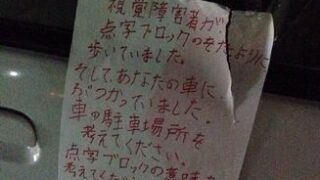 視覚障害者が
点字ブロックのをたよりに
歩いていました。
そしてあなたの車に
がつかっていました
車の駐車場所を
考えてください。
点字ブロックの意味を
考えてください